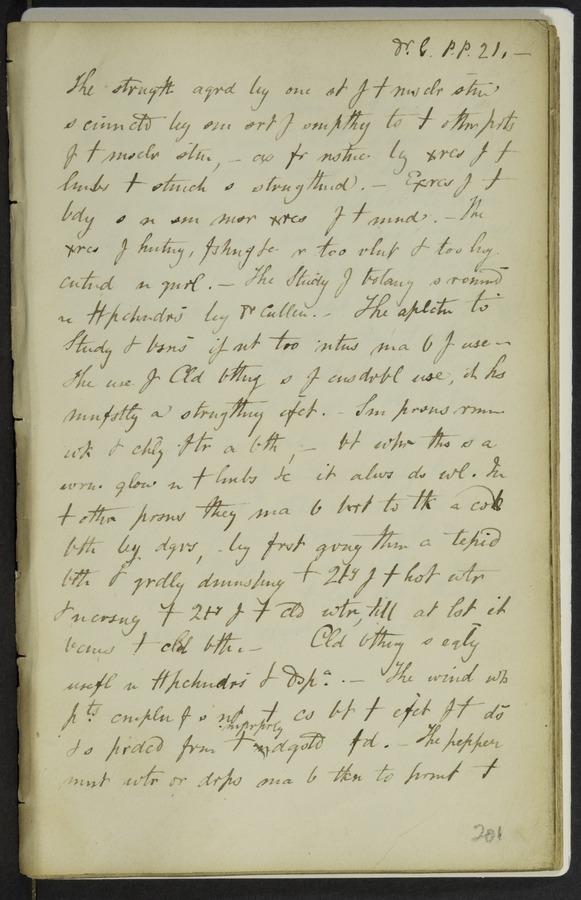 Dr. C. P.P. 21. —
The strugth aqrd by one st f t msclr stm
s cinnctd by sm srt f smpthy to t othr prts
f t msclr stm, — as fr nstnc by xrcs f t
lmbs t stmch s strngthnd. — Exrcs f t
bdy s n sm msr xrcs f t mnd. — The
xrcs f hntng, fshng &c r too vlnt & too lng
cntnd n gnrl. — The Study f botany s rcmnd
n Hpchndrs by Dr Cullen. — The aplctn to
Study & bsns if nt too ntns ma b f use —
The use f Cld bthng s f cnsdrbl use, it hs
mnfstly a strngthng efct. — Sm prsns rmn
wk & chly ftr a bth, — bt whr ths s a
wrm glow n t lmbs &c it alws ds wl. In
t othr prsns they ma b brot to tk a cold
bth by dgrs, by frst gvng thm a tepid
bth & grdly dmnshng t 2ty f t hot wtr
& ncrsng t 2ty f t cld wtr, till at lst it
bcms t cld bth. — Cld bthng s eqly
usefl n Hpchndrs & Dspa. — The wind wh
pts cmpln f s nt t cs bt t efct f t ds
& s prdcd frm t imprprly ndgstd fd. — The pepper
mnt wtr or drps ma b tkn to prmt t
201